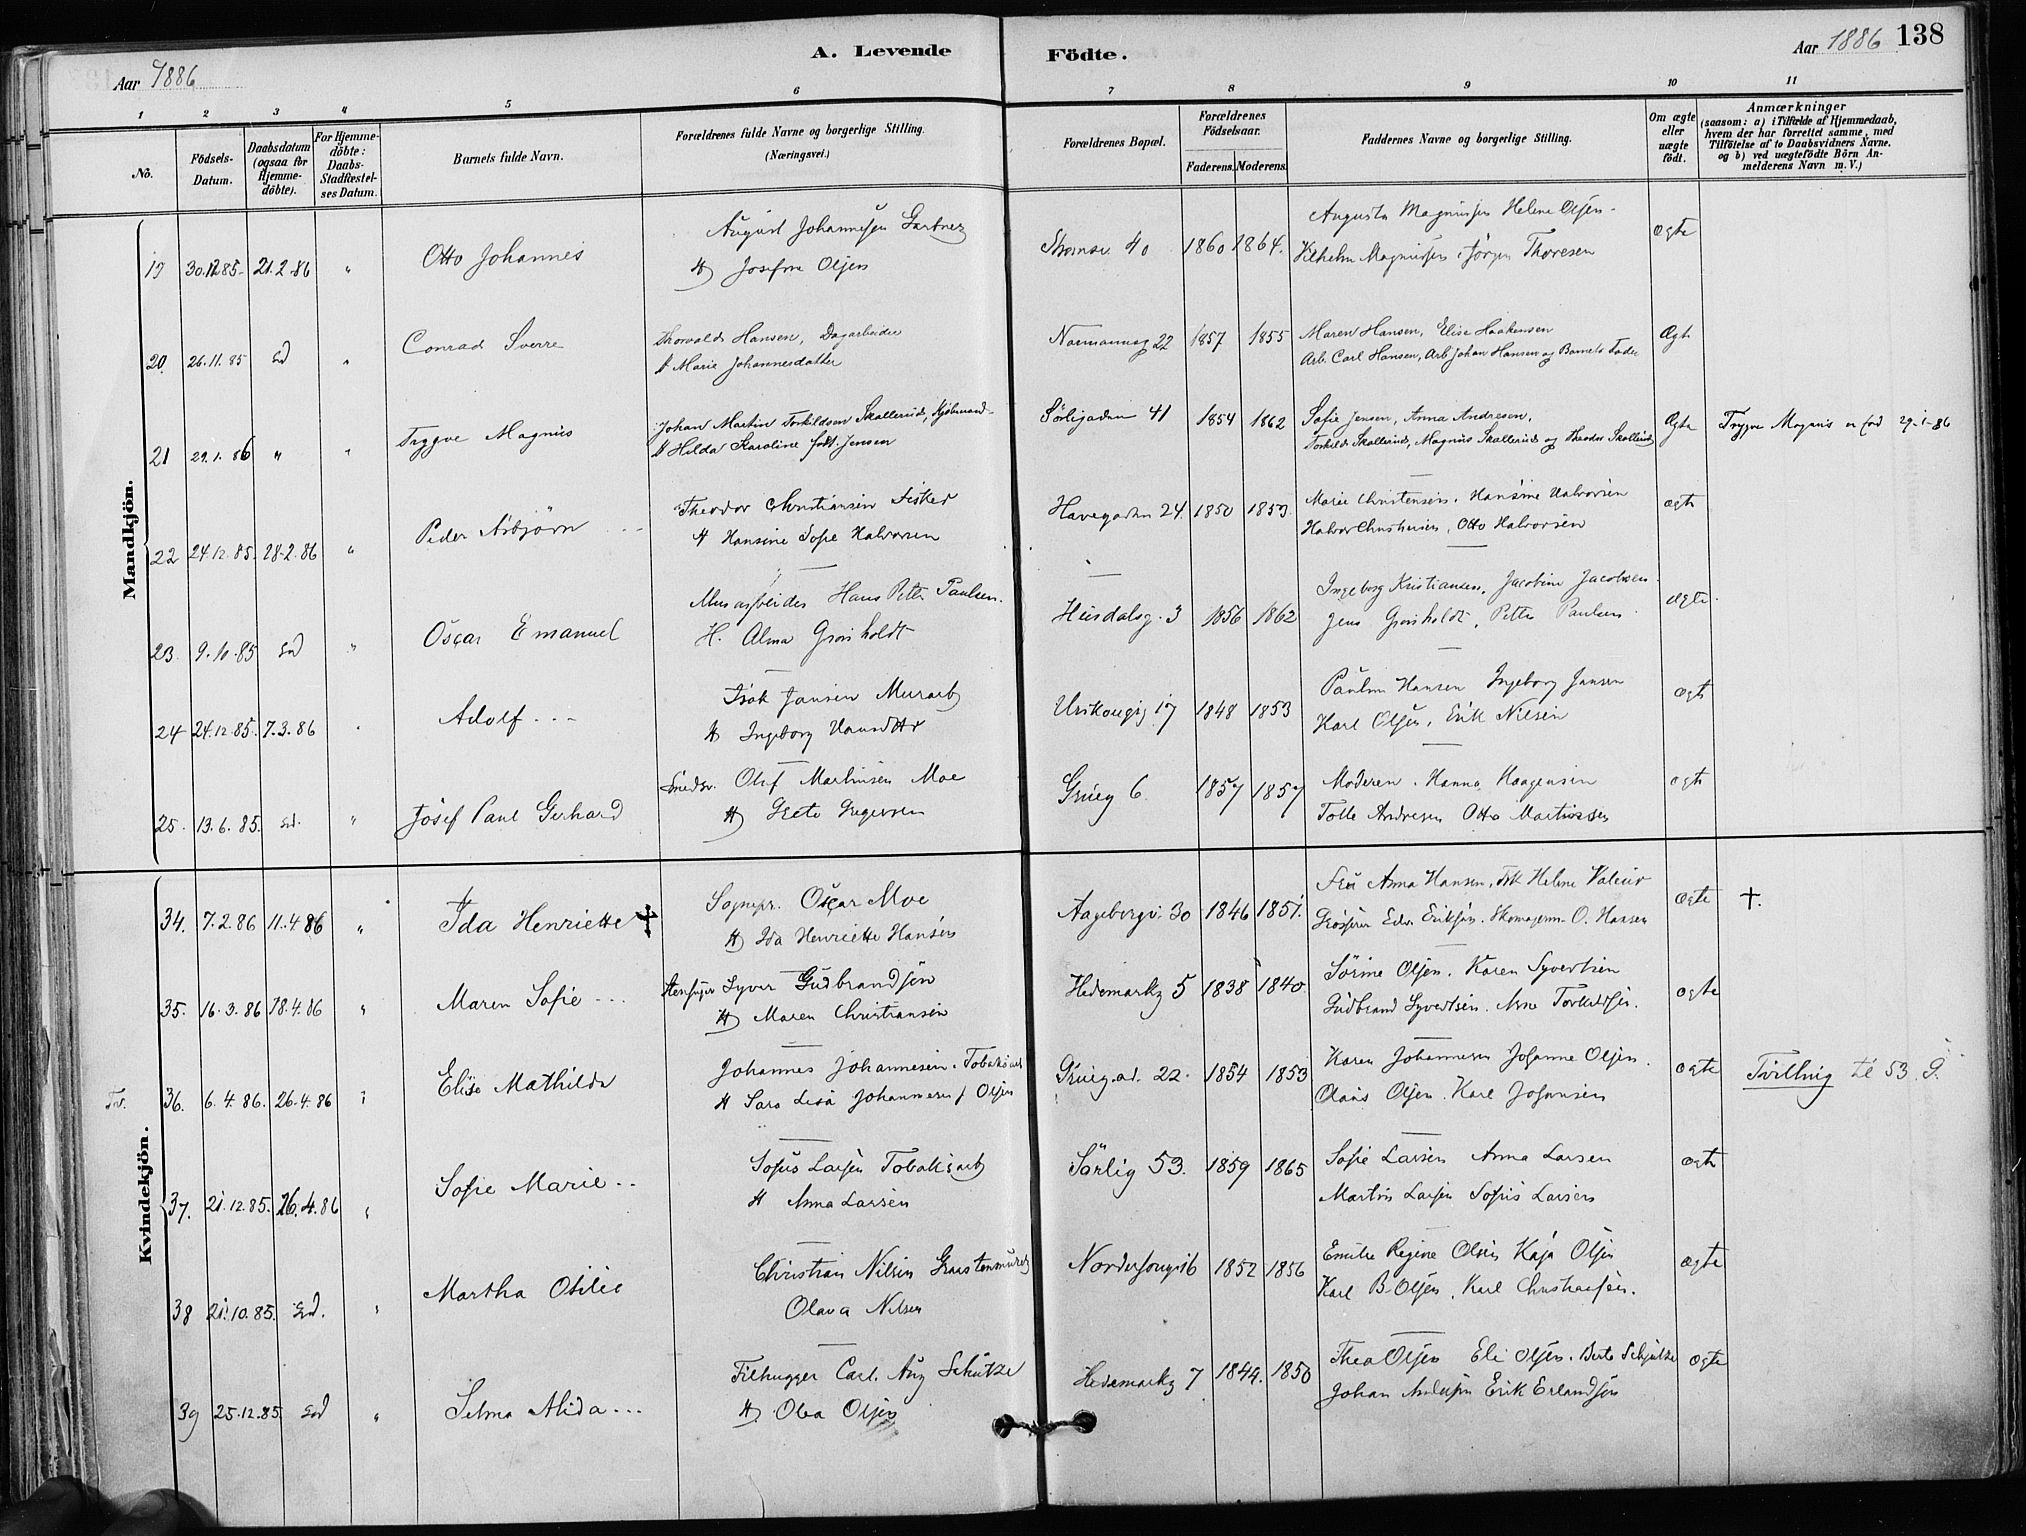 A. Levende Födte.
Aar 1886
Aar 1886 138
1 2 3 4 5 6 7 8 9 10 11
No.
Födsels-Datum.
Daabsdatum (ogsaa for Hjemmedöbte).
For Hjemmedöbte: Daabs-Stadfæstelses Datum.
Barnets fulde Navn.
Forældrenes fulde Navne og borgerlige Stilling. (Næringsvei.)
Forældrenes Bopæl.
Forældrenes Födselsaar.
Faderens. Moderens.
Faddernes Navne og borgerlige Stilling.
Om ægte eller uægte födt.
Anmærkninger (saasom: a) i Tilfælde af Hjemmedaab, hvem der har forrettet samme, med Tilföielse af to Daabsvidners Navne, og b) ved uægtefödte Börn Anmelderens Navn m. V.)
Mandkjön.
August Johannesen Gartner Augusta Magnussen Helene Olsen
19 30.12.85. 21.2.86 " Otto Johannes 40 1860 1864. Ægte
H Josefine Olsen Vilhelm Magnussen Jørgen Thoresen
Thorvald Hansen, Dagarbeider Maren Hansen, Elise Haakensen
20. 26.11.85 sd " Conrad Sverre Normannsg 22 1857 1855 Ægte
H Marie Johannesdatter Arb. Carl Hansen, Arb Johan Hansen og Barnets Fader
Johan Martin Torkildsen Skallerud, Kjøbmand Sofie Jensen, Anna Andresen,
21 29.1.86 " " Trygve Magnus Sørligaden 41 1854 1862 Ægte Trygve Magnus er fød 29-1-86
H Hilda Karoline født Jensen Torkild Skallerud, Magnus Skallerud og Theodor Skallerud
Theodor Christiansen Fisker Marie Christensen. Hansine Halvorsen
22 24.12.85. 28.2.86 " Peder Asbjørn Havegaden 24. 1850 1853. ægte
H Hansine Sofie Halvorsen Halvor Christensen, Otto Halvorsen
Murarbeider Hans Petter Paulsen. Ingeborg Kristiansen, Jacobine Jacobsen
23. 9.10.85 sd " Oscar Emanuel Heimdalsg. 3 1856 1862 ægte
H. Alma Grønholdt Jens Grønholdt, Petter Paulsen
Isak Jansen Murarb Pauline Hansen Ingeborg Jansen
24 24.12.85. 7.3.86 " Adolf 17 1848 1853 ægte
H Ingeborg Karl Olsen, Erik Nilsen
Smedsv. Oluf Martinsen Moe Moderen. Hanna Haagensen
25. 13.6.85. sd. " Josef Paul Gerhard Grueg 6. 1857 1857 ægte
H Grete Gregersen Tolle Andresen Otto Martinssen
Kvindekjön.
Sognepr. Oscar Moe Fru Anna Hansen, Frk Helene Valeur
34. 7.2.86 11.4.86 " Ida Henriette † Aagebergv. 30 1846 1851. ægte †.
H Ida Henriette Hansen Grosserer Edv. Eriksen. Skomagerm. O. Hansen
Syver Gudbrandsen Sørine Olsen. Karen Syvertsen
35. 16.3.86 18.4.86 " Maren Sofie Hedemarkg 5 1838 1840. ægte
H Maren Christiansen Gudbrand Syvertsen. Arne Torkildsen.
Johannes Johannesen. Tobaksarb Karen Johannesen Josanne Olsen.
Tv. 36. 6.4.86. 26.4.86 " Elise Mathilde Gruegad. 22. 1854 1853 ægte Tvilling til 53. G.
H Sara Lisa Johannesen f Olsen Olaus Olsen. Karl Johansen
Sofus Larsen Tobaksarb Sofie Larsen Anna Larsen
37. 21.12.85. 26.4.86 " Sofie Marie Sørlig 53. 1859 1865 ægte
H Anna Larsen Martin Larsen Sofus Larsen
Christian Nilsen Graastensmurer Emilie Regine Olsen Kaja Olsen
38 21.10.85. sd. " Martha Otilie 1852 1856 ægte
Olava Nilsen Karl B. Olsen, Karl Christiansen.
Filhugger Carl. Aug Schutze Thea Olsen Eli Olsen. Berte Schjutze
39 25.12.85 sd " Selma Alida Hedemarkg 7 1844. 1850 ægte
H Olea Olsen Johan Andersen Erik Erlandsen